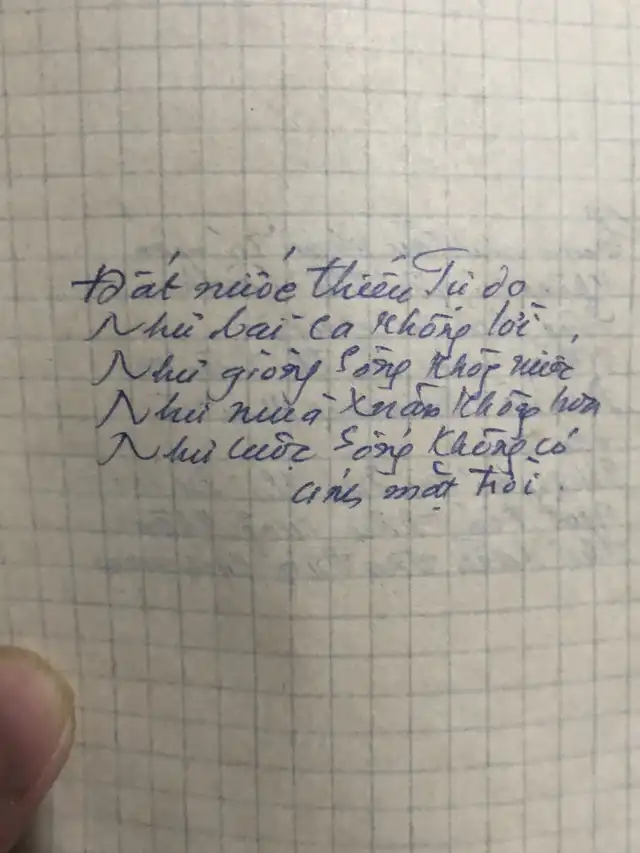 Đất nước thiếu Tự do
Như bài ca không lời,
Như giòng sông không nước
Như mùa xuân không hoa
Như cuộc sống không có
ánh mặt trời.